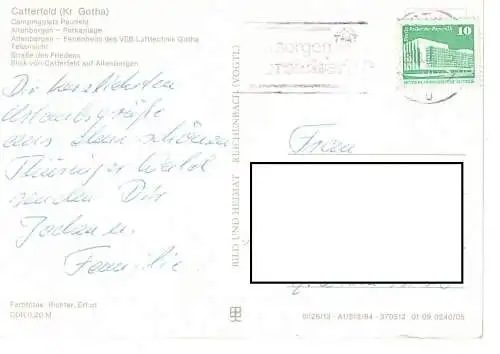 Catterfeld (Kr. Gotha)
Campingplatz Paulfeld
Altenbergen - Parkanlage
Altenbergen - Ferienheim des VEB Lufttechnik Gotha
Teilansicht
Straße des Friedens
Blick von Catterfeld auf Altenbergen
Die herzlichsten
Urlaubsgrüße
aus dem schönen
Thüringer Wald
senden Dir
Jochen u.
Familie
Farbfotos: Richter, Erfurt
BILD UND HEIMAT REICHENBACH (VOGTL)
10
Frau
6/26/13 A U 512/84 370512 01 09 0240/05